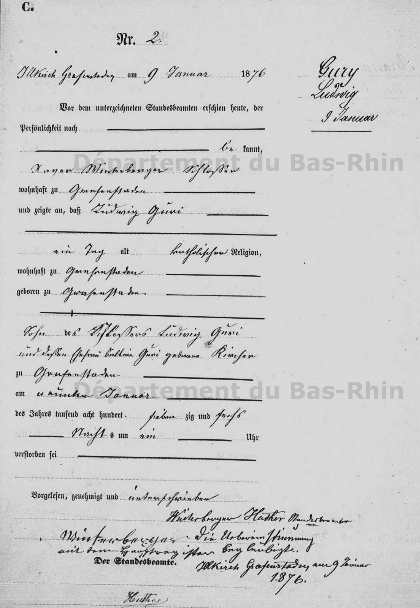 C.
Nr. 2.
Illkirch Grafenstaden am 9 Januar 1876
Gury
Ludwig
9 Januar
Vor dem unterzeichneten Standesbeamten erschien heute, der
Persönlichkeit nach
be kannt,
Xaver Winterberger Schlosser
wohnhaft zu Grafenstaden
und zeigte an, daß Ludwig Guri
ein Tag alt katholischer Religion,
wohnhaft zu Grafenstaden
geboren zu Grafenstaden
Sohn des Schlossers Ludwig Guri
und dessen Ehefrau Guri geborene Kircher
zu Grafenstaden
am neunten Januar
des Jahres tausend acht hundert sieben zig und sechs
Nachts um ein Uhr
verstorben sei
Vorgelesen, genehmigt und unterschrieben
Winterberger Huther Standesbeamter
Winterberger Die Uebereinstimmung
mit dem Hauptregister beglaubigt.
Der Standesbeamte. Illkirch Grafenstaden, am 9 Januar
1876.
Huther
Département du Bas-Rhin
Département du Bas-Rhin